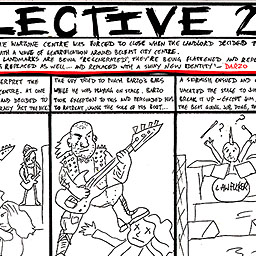 LECTIVE 2
E WARZONE CENTRE WAS FORCED TO CLOSE WHEN THE LANDLORD DECIDED T
WITH A WAVE OF GENTRIFICATION AROUND BELFAST CITY CENTRE.
LANDMARKS ARE BEING 'REGENERATED', THEY'RE BEING FLATTENED AND REP
REPLACED AS WELL... AND REPLACED WITH A SHINY NEW IDENTITY"- DARZO
ERPRET THE
CENTRE. AT ONE
AND DECIDED TO
THE GUY TRIED TO PUNCH BARZO'S
WHILE HE WAS PLAYING ON STAGE. BARZO
TOOK EXCEPTION TO THIS AND PERSUADED HIM
TO RETREAT, USING THE SOLE OF HIS BOOT...
A SCRUMISH ENSUED AND
VACATED THE STAGE TO JUM
BREAK IT UP - EXCEPT
LAWFUCKER